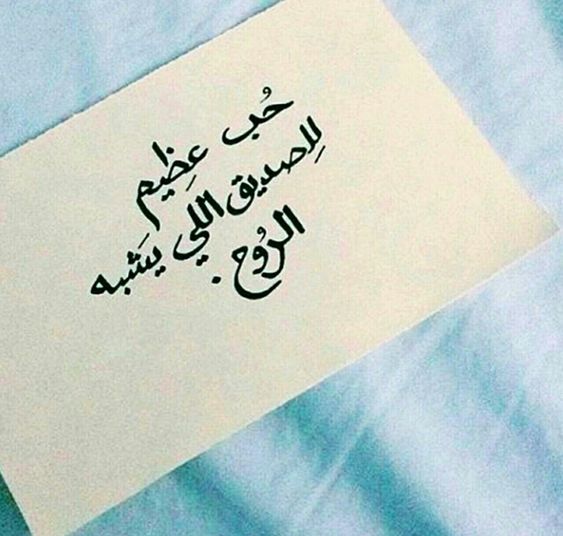 حُب عِظيم
لِلصديق اللي يَشبه
الرُوح.